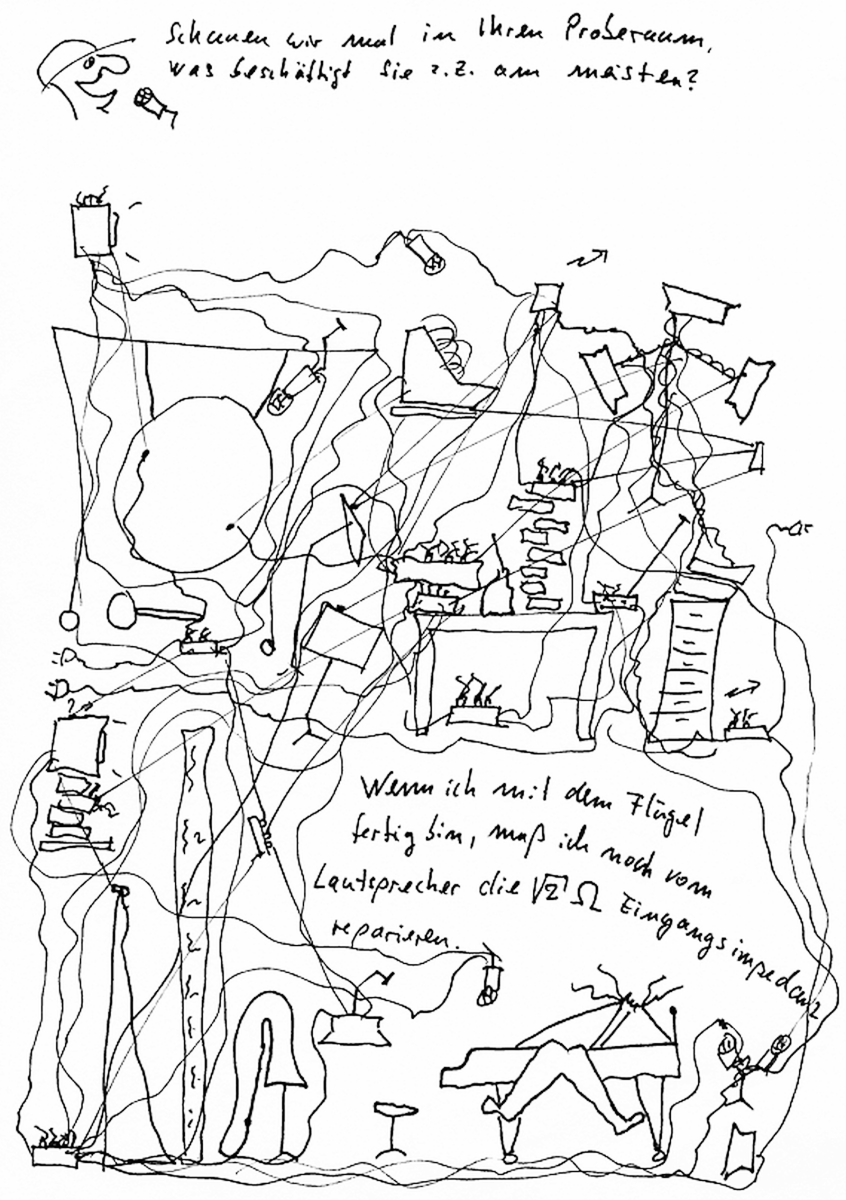 Schauen wir mal in Ihren Proberaum,
was beschäftigt Sie z.Z. am meisten?
Wenn ich mit dem Flügel
fertig bin, muß ich noch vom
Lautsprecher die √2 Ω Eingangsimpedanz
reparieren.